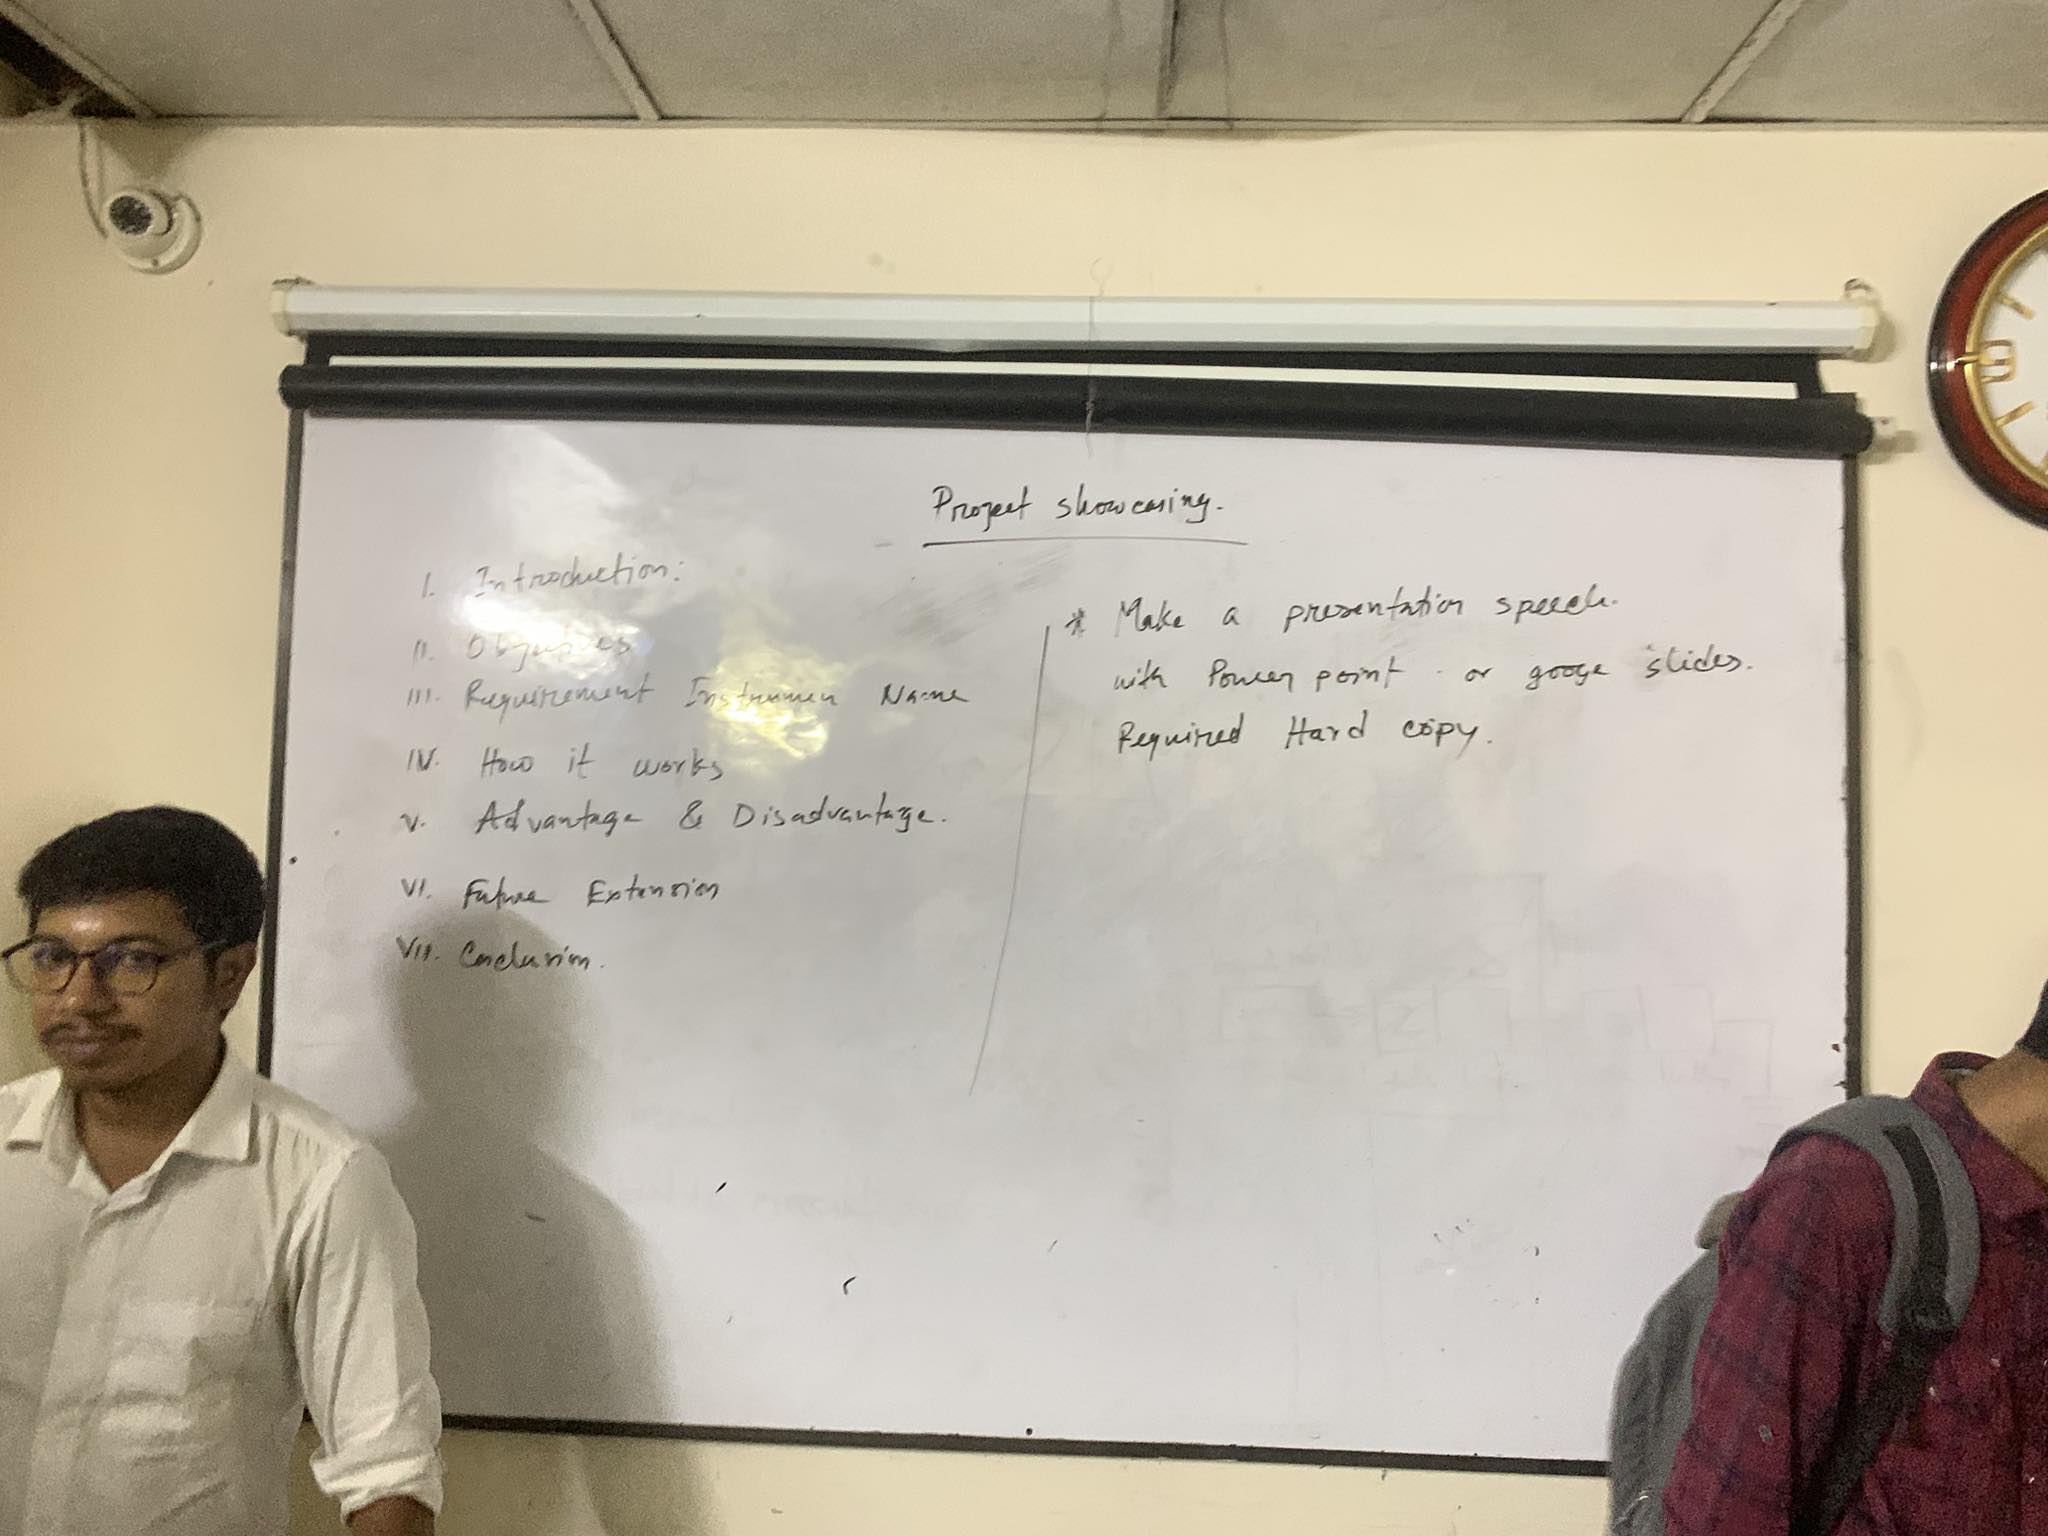 Project showcasing.
I. Introduction:
II. Objectives
III. Requirement Instrumen Name
IV. How it works
V. Advantage & Disadvantage.
VI. Future Extension
VII. Conclusion.
* Make a presentation speech.
with Power point or googe slides.
Required Hard copy.